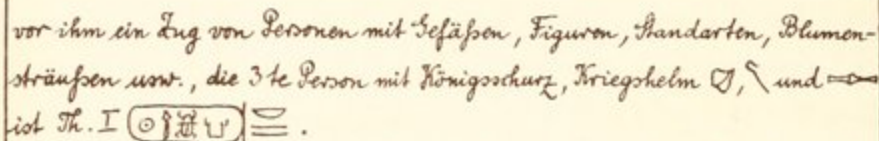 vor ihm ein Zug von Personen mit Gefäßen, Figuren, Standarten, Blumen-
sträußen usw., die 3te Person mit Königsschurz, Kriegshelm , und
ist Th. I .